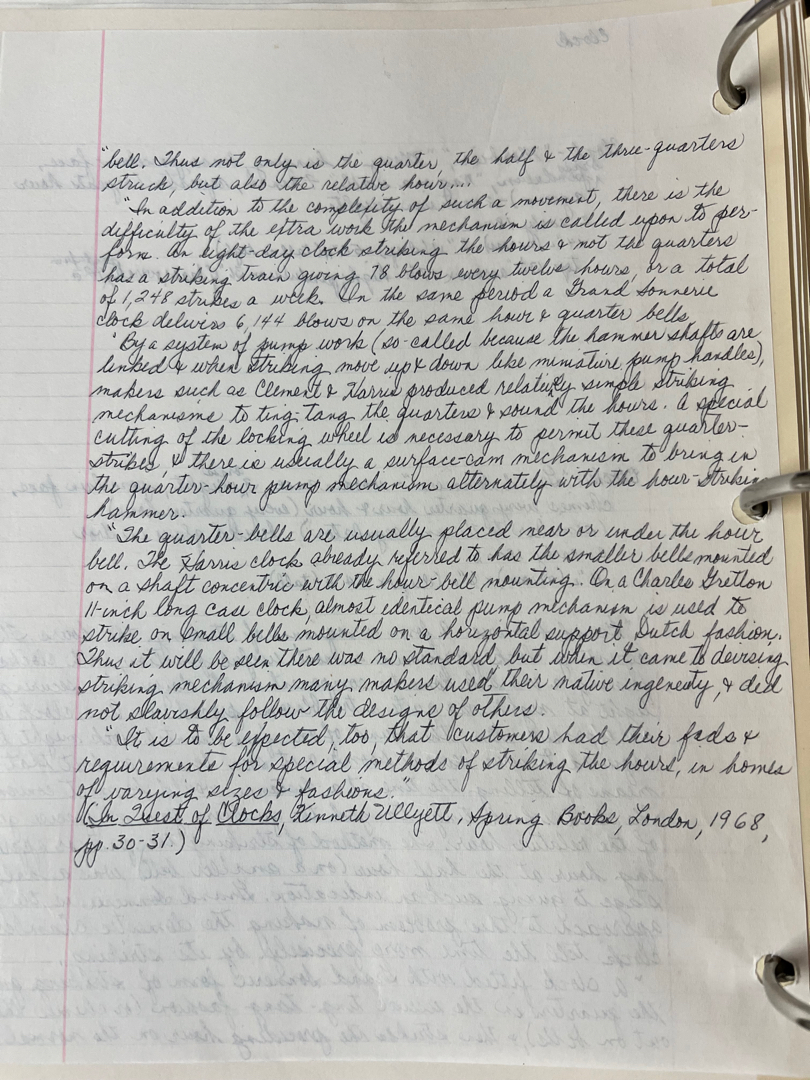 "bell. Thus not only is the quarter, the half & the three-quarters
struck, but also the relative hour....
"In addition to the complexity of such a movement, there is the
difficulty of the extra work the mechanism is called upon to per-
form. An eight-day clock striking the hours & not the quarters
has a striking train giving 78 blows every twelve hours, or a total
of 1,248 strikes a week. On the same period a Grand Sonnerie
clock delivers 6,144 blows on the same hour & quarter bells.
"By a system of pump work (so-called because the hammer shafts are
linked & when striking move up & down like miniature pump handles),
makers such as Clement & Harris produced relatively simple striking
mechanisms to ting-tang the quarters & sound the hours. A special
cutting of the locking wheel is necessary to permit these quarter-
strikes, & there is usually a surface-cam mechanism to bring in
the quarter-hour pump mechanism alternately with the hour-striking
hammer.
"The quarter-bells are usually placed near or under the hour
bell. The Harris clock already referred to has the smaller bells mounted
on a shaft concentric with the hour-bell mounting. On a Charles Gretton
11-inch long case clock, almost identical pump mechanism is used to
strike on small bells mounted on a horizontal support Dutch fashion.
Thus it will be seen there was no standard, but when it came to devising
striking mechanism many makers used their native ingenuity, & did
not slavishly follow the designs of others.
"It is to be expected, too, that customers had their fads &
requirements for special methods of striking the hours, in homes
of varying sizes & fashions."
(In Quest of Clocks, Kenneth Ullyett, Spring Books, London, 1968,
pp. 30-31.)